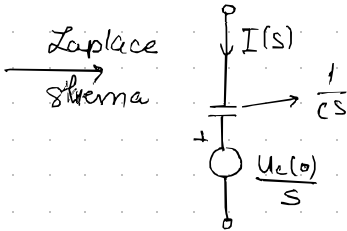 Laplace
shema
I(s)
1
cs
+
Uc(0)
S